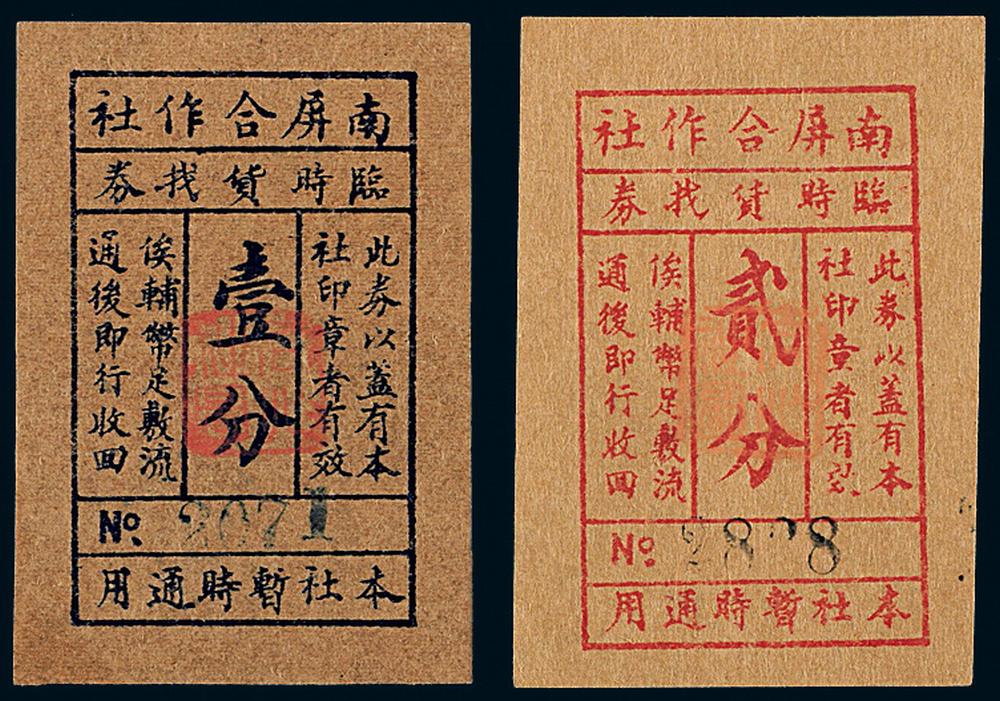 南屏合作社
臨時貨找券
此券以蓋有本
社印章者有效
壹分
俟輔幣足敷流
通後即行收回
No. 2071
本社暫時通用
南屏合作社
臨時貨找券
此券以蓋有本
社印章者有效
貳分
俟輔幣足敷流
通後即行收回
No.
本社暫時通用